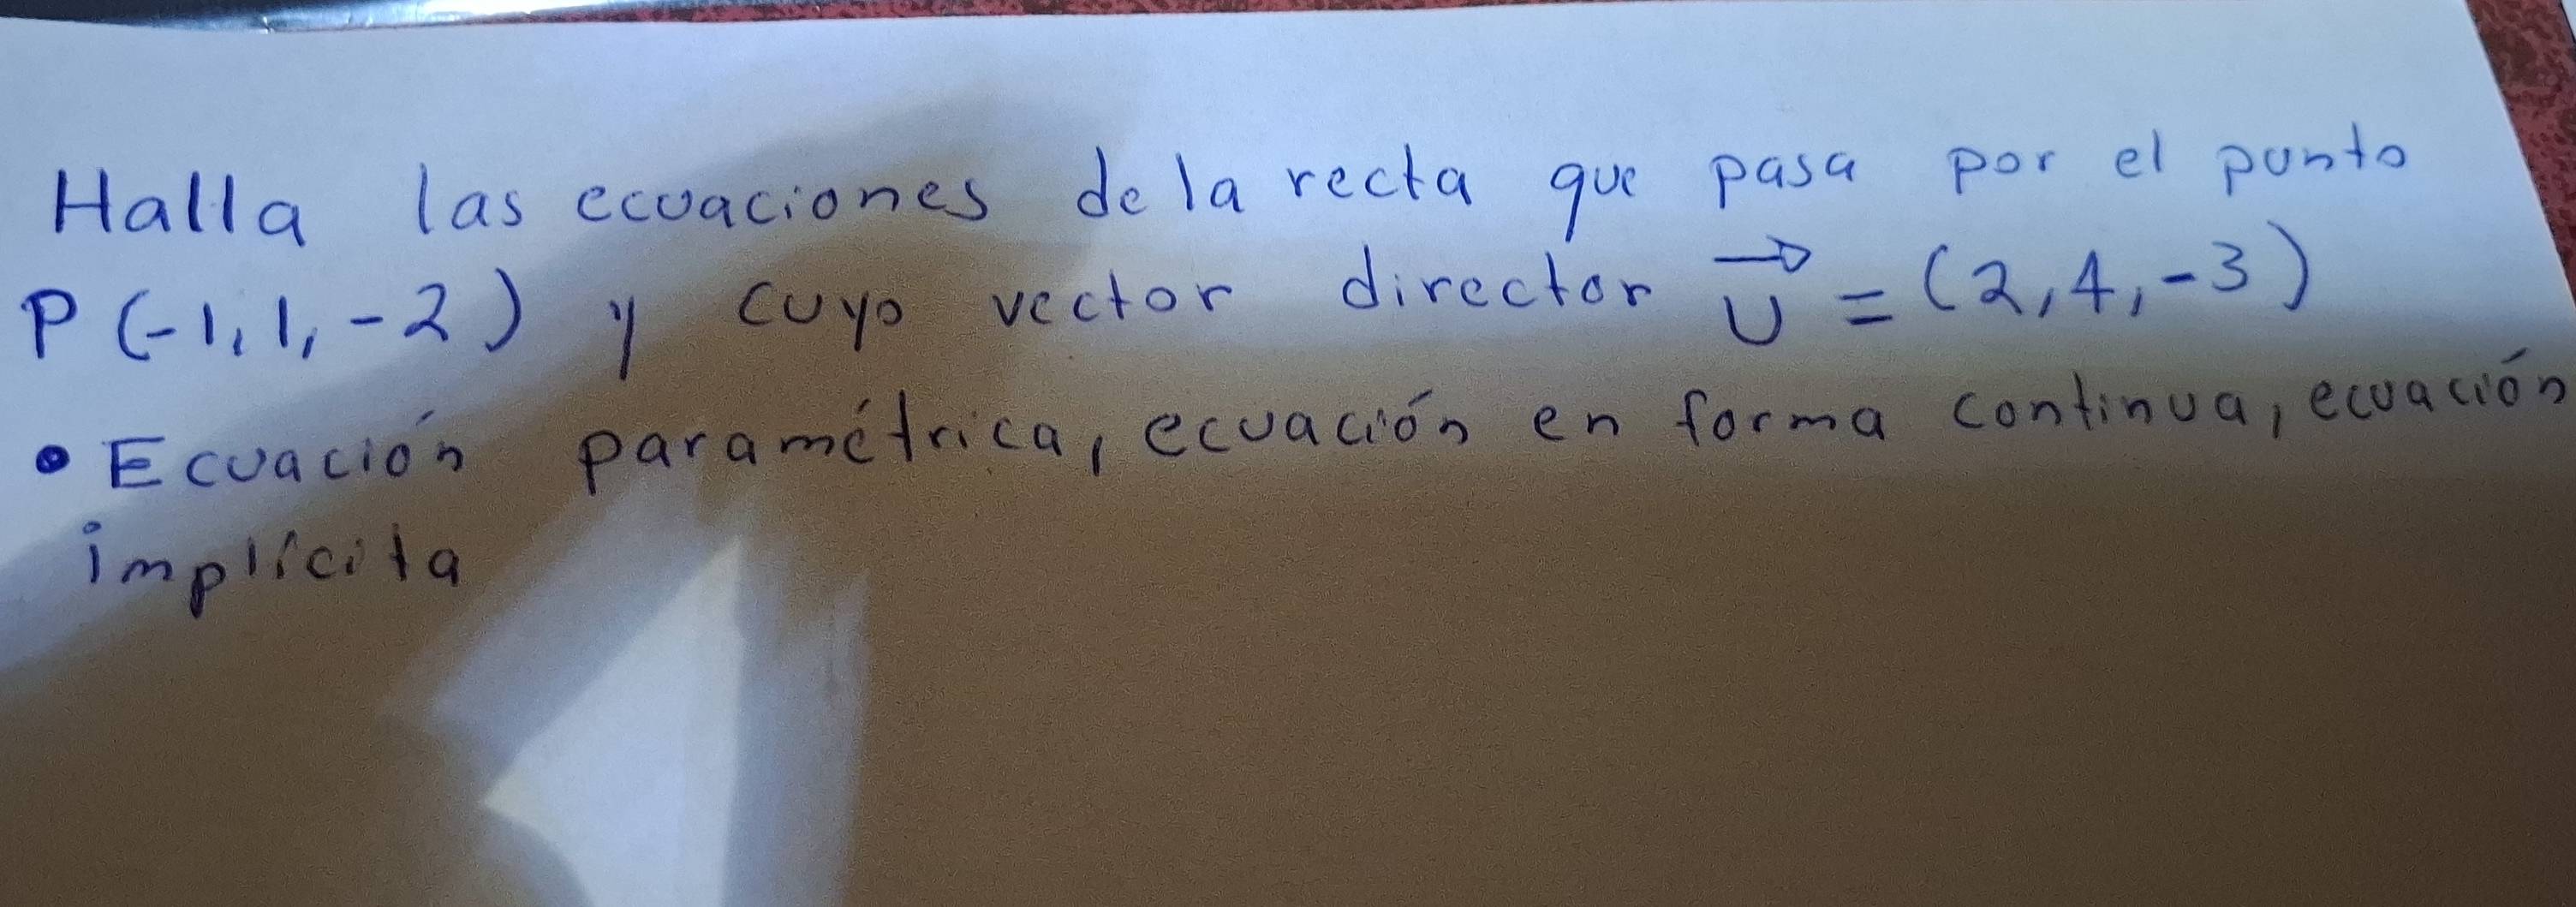 Halla las ecuaciones de la recta que pasa por el punto
P(-1, 1, -2) y cuyo vector director U⃗ = (2, 4, -3)
• Ecuación paramétrica, ecuación en forma continua, ecuación
implícita